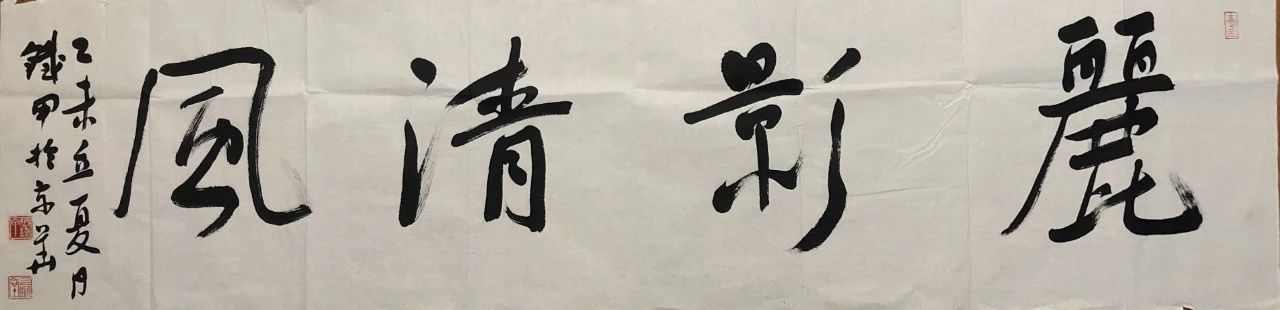 麗影清風
乙未丘夏月
鐵甲於京華